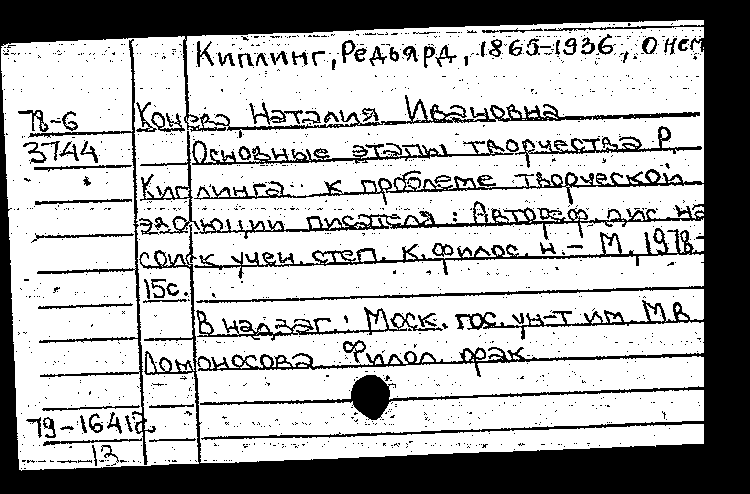 Киплинг, Редьярд, 1865-1936, О нем
78-6 Конева, Наталия Ивановна
3744 Основные этапы творчества Р.
Киплинга: к проблеме творческой
эволюции писателя: Автореф. дис. на
соиск. учен. степ. к. филос. н. - М., 1978-
15с.
В надзаг: Моск. гос. ун-т им. М.В.
Ломоносова. Филол. фак.
79-16412
13